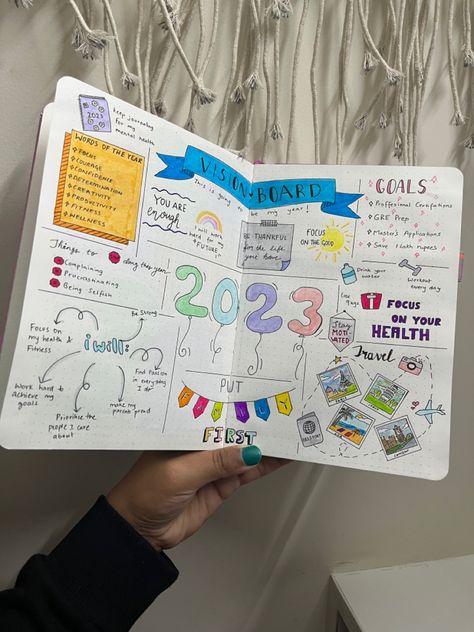 2023
keep journaling
for my
mental health
WORDS OF THE YEAR
FOCUS
COURAGE
CONFIDENCE
DETERMINATION
CREATIVITY
PRODUCTIVITY
FITNESS
WELLNESS
VISION BOARD
This is going to be my year!
YOU ARE
enough
I will work
hard for my
FUTURE
BE THANKFUL
for the life
you have
FOCUS
ON THE GOOD
GOALS
GRE Prep
Master's Applications
Save 1 lakh rupees
Things to
along this year
Complaining
Procrastinating
Being Selfish
2023
Drink your
water
Workout
every day
Lose
STAY
MOTI
VATED
FOCUS
ON YOUR
HEALTH
i will:
Be Strong
Focus on
my health &
Fitness
Work hard to
achieve my
goals
Prioritize the
people I care
about
make my
parents proud
Find Passion
in everyday
I do
PUT
FAMILY
FIRST
Travel
PASSPORT